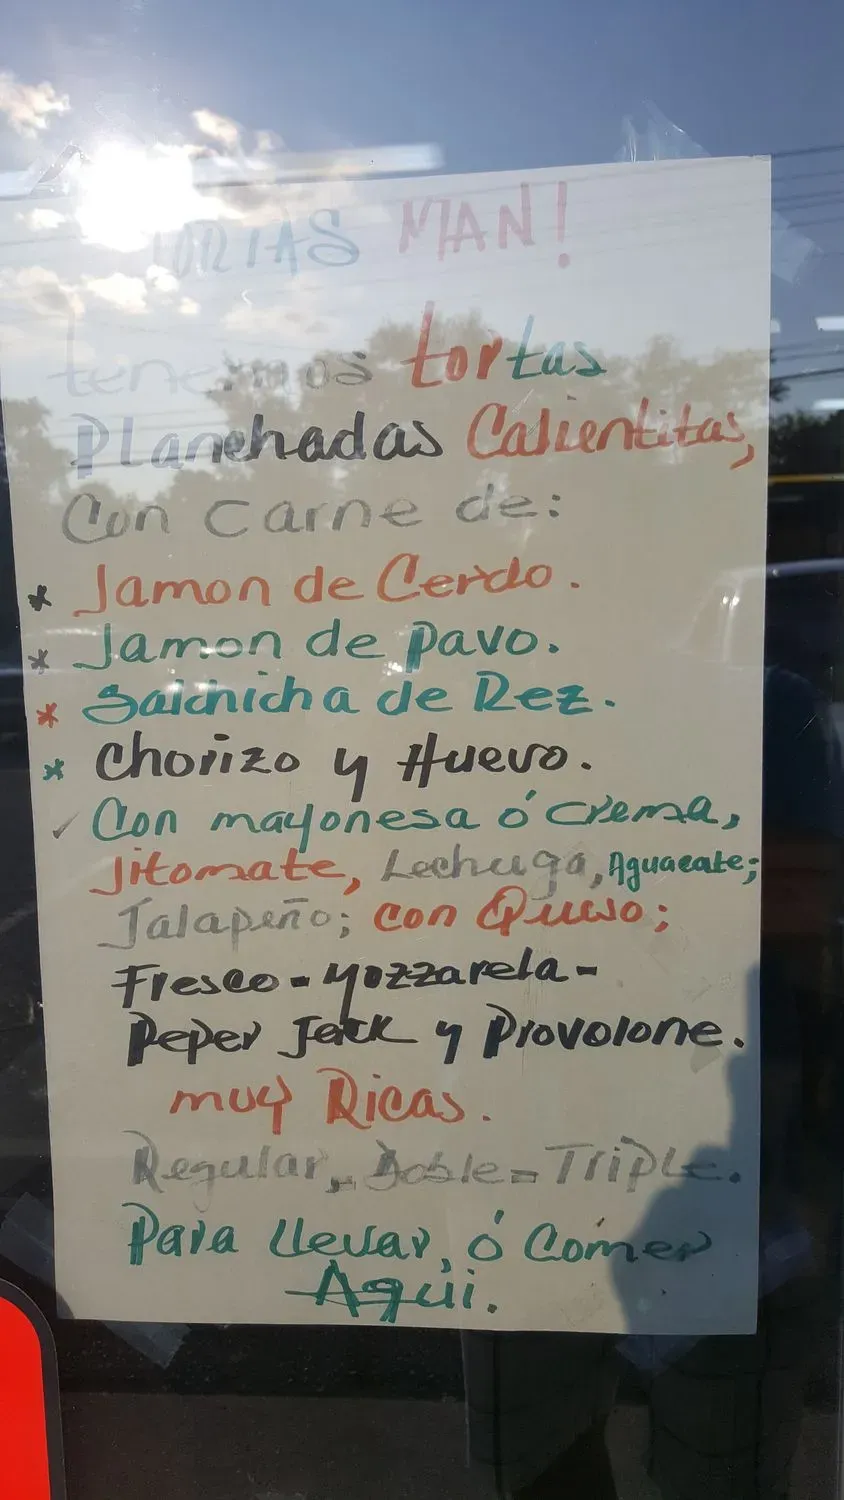 TORTAS MAN!
tenemos tortas
Planchadas Calientitas,
Con carne de:
* Jamon de Cerdo.
* Jamon de pavo.
* Salchicha de Rez.
* Chorizo y Huevo.
✓ Con mayonesa ó crema,
Jitomate, Lechuga, Aguacate;
Jalapeño; con Queso;
Fresco - Mozzarela -
Peper Jack y Provolone.
muy Ricas.
Regular, - Doble = Triple.
Para Llevar, ó Comer
Aqui.